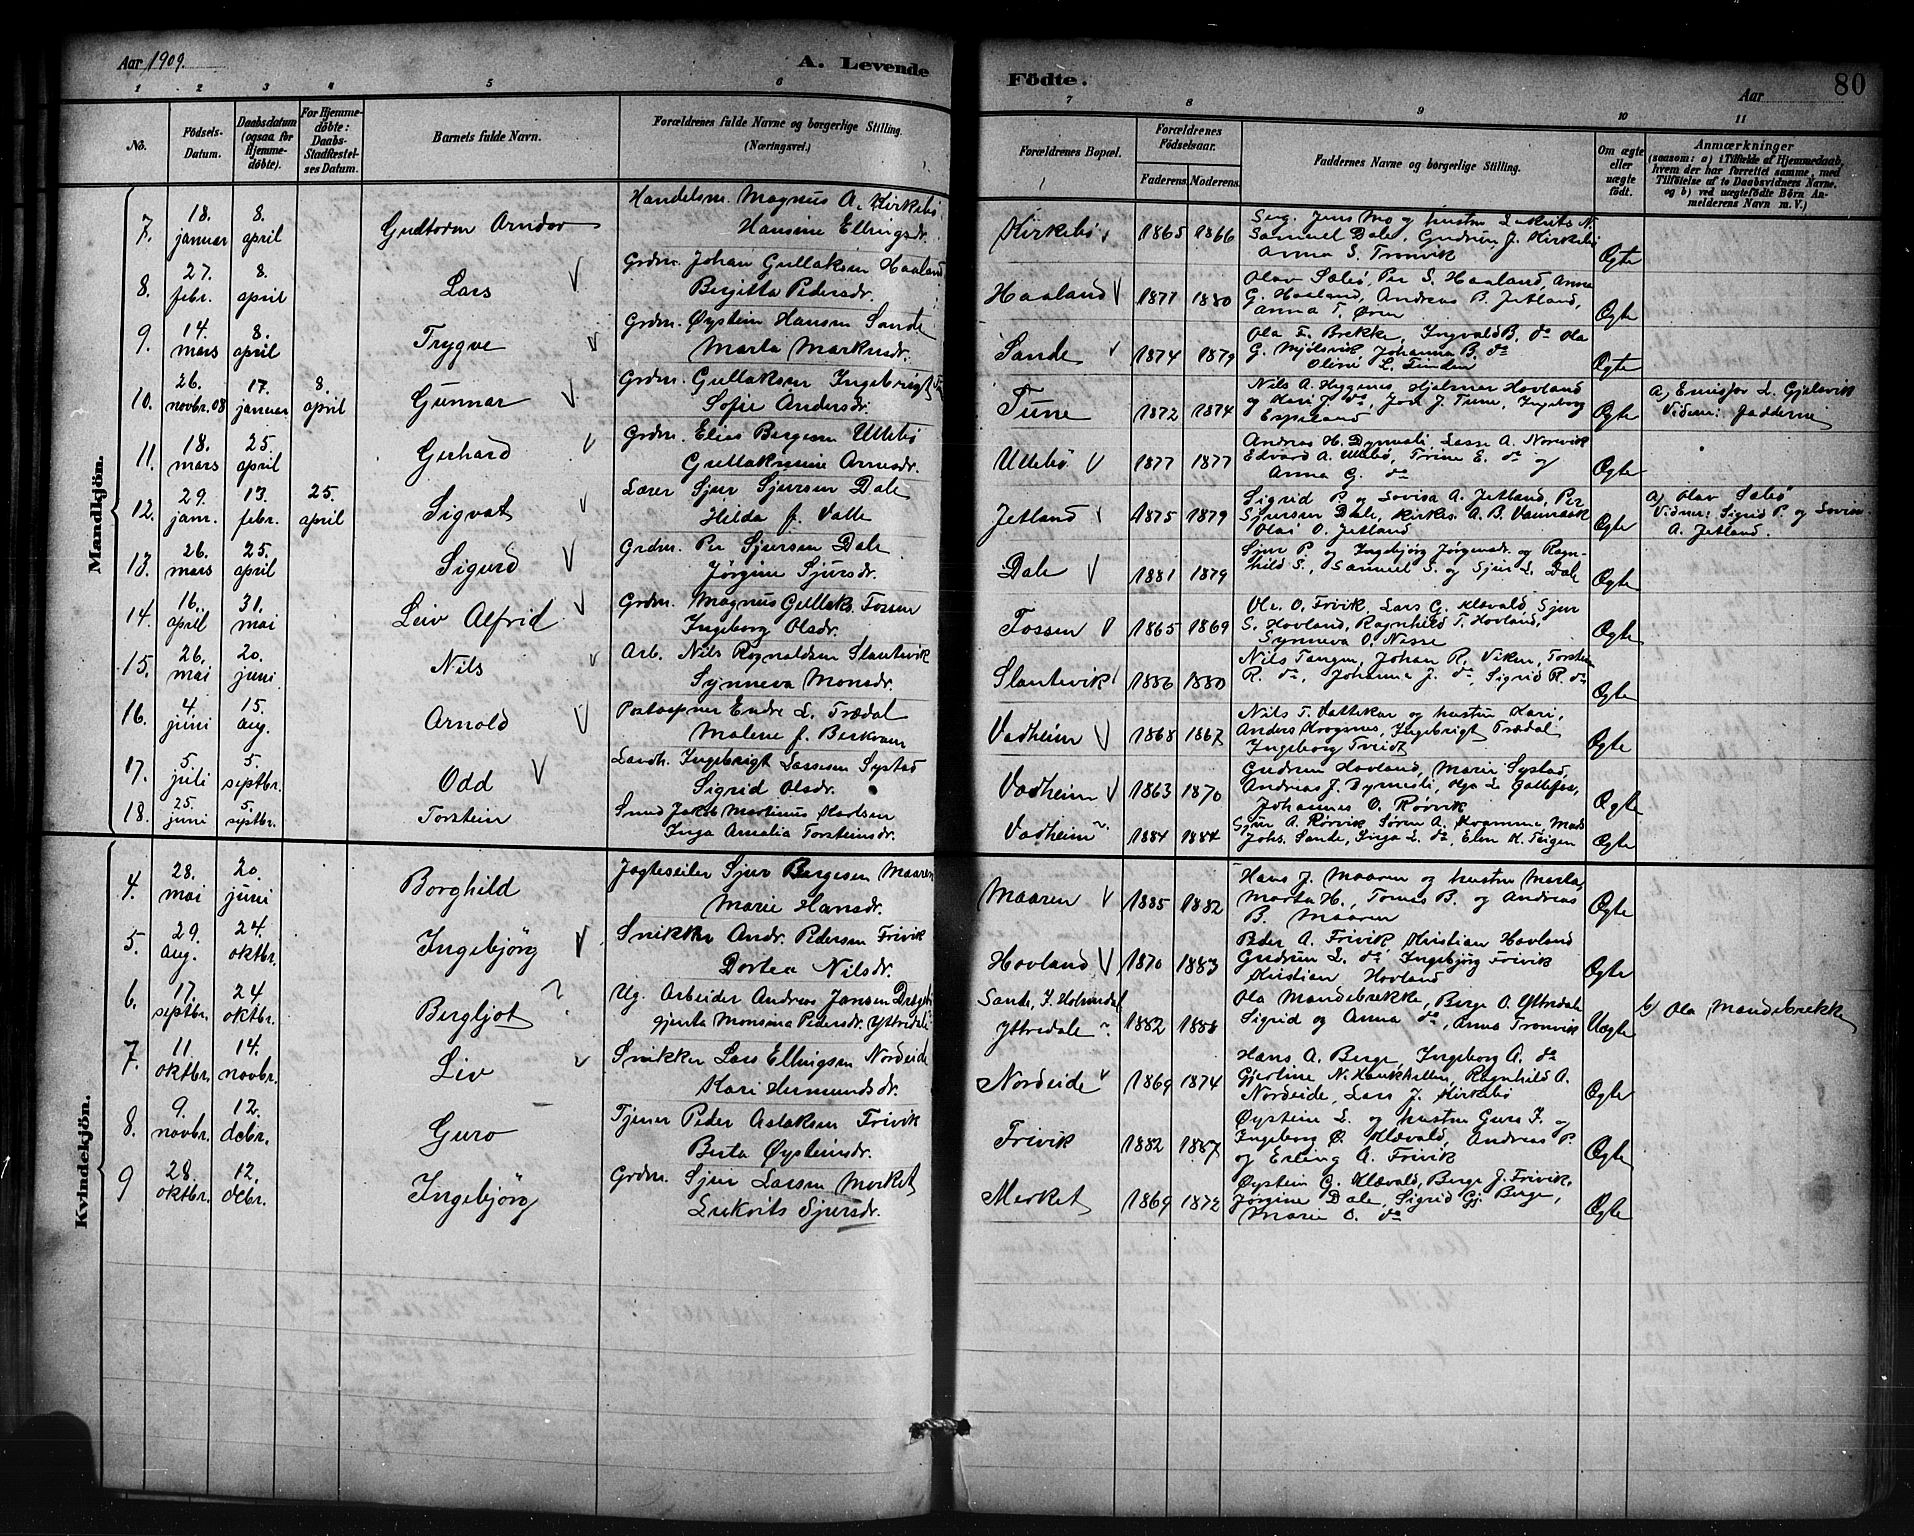 Aar 1909.
A. Levende Födte.
80
Aar
1 2 3 4 5 6 7 8 9 10 11
No.
Födsels-Datum.
Daabsdatum (ogsaa for Hjemme-döbte).
For Hjemme-döbte: Daabs-Stadfæstel-ses Datum.
Barnets fulde Navn.
Forældrenes fulde Navne og borgerlige Stilling. (Næringsvei.)
Forældrenes Bopæl.
Forældrenes Födselsaar.
Faderens. Moderens.
Faddernes Navne og borgerlige Stilling.
Om ægte eller uægte födt.
Anmærkninger
(saasom: a) i Tilfælde af Hjemmedaab, hvem der har forrettet samme, med Tilföielse af to Daabsvidners Navne, og b) ved uægtefödte Börn An-melderens Navn m. V.)
Mandkjön.
7. 18. januar 8. april Gudtorm Arndor Handelsm. Magnus A. Kirkebö Hansine Ellingsdr. Kirkebö 1865 1866 Jens Mo og hustru N. Samuel Dale, Gudrun J. Kirkebö Anna S. Tronvik Ægte
8. 27. febr. 8. april Lars Grdm. Johan Gullaksen Haaland Bergitta Pedersdr. Haaland 1877 1880 Olav Sæbø, Per S. Haaland, Anna G. Haaland, Andreas B. Jetland, Anna T. Øren Ægte
9. 14. mars 8. april Trygve Grdm. Øystein Hansen Sande Marta Markusdr. Sande 1874 1879 Ola F. Brekke, Ingvald B. do Ola G. Mjölsvik, Johanna B. do Oline L. Linden Ægte
10. 26. novbr. 08 17. januar 8. april Gunnar Grdm. Gullaksen Ingebrigt Sofie Andersdr. Tune 1872 1874 Nils A. Hygenes, Hjalmar Hovland og Kari J. do, Jon J. Tune, Ingeborg Espeland Ægte a) Emisær L. Gjelsvik Vidner: Fadderne
11. 18. mars 25. april Gerhard Grdm. Elias Bergesen Ullebö Gullaksine Arnesdr. Ullebö 1877 1877 Andreas H. Dymesli, Lasse A. Norevik Edvard A. Ullebö, Trine E. do og Anna G. do Ægte
12. 29. janr. 13. febr. 25. april Sigvat Lærer Sjur Sjursen Dale Hilda f. Valle Jetland 1875 1879 Sigrid P. og Lovisa A. Jetland, Per Sjursen Dale, kirkes. A. B. Vamraak Olai O. Jetland Ægte a) Olav Sæbø Vidner: Sigrid P. og Lovisa A. Jetland.
13. 26. mars 25. april Sigurd Grdm. Per Sjursen Dale Jørgine Sjursdr. Dale 1881 1879 Sjur P. og Ingebjørg Jørgensdr. og Ragn-hild S., Samuel S. og Sjur L. Dale Ægte
14. 16. april 31. mai Leiv Alfrid Grdm. Magnus Gullaks. Fossen Ingeborg Olsdr. Fossen 1865 1869 Ole O. Frivik, Lars G. Klævold, Sjur S. Hovland, Ragnhild T. Hovland, Synneva O. Nesse Ægte
15. 26. mai 20. juni Nils Arb. Nils Rognaldsen Slantevik Synneva Monsdr. Slantevik 1886 1880 Nils Tangen, Johan R. Viken, Torstein R. do, Johanna J. do, Sigrid R. do Ægte
16. 4. juni 15. aug. Arnold Postaapner Endre L. Trædal Malene f. Berkvam Vadheim 1868 1867 Nils T. Vattekar og hustru Kari, Anders Krogsnes, Ingebrigt Trædal Ingeborg Tveidt Ægte
17. 5. juli 5. septbr. Odd Landh. Ingebrigt Lassesen Systad Sigrid Olsdr. Vadheim 1863 1870 Gudrun Hovland, Marie Systad, Andreas J. Dymesli, Johannes O. Rørvik Ægte
18. 25. juni 5. septbr. Torstein Smed Jakob Martinus Karlsen Inga Amalia Torsteinsdr. Vadheim 1884 1884 Sjur A. Rørvik, Søren A. Kvamme, Mads Johs. Sande, Inga L. do, Elen K. Teigen Ægte
Kvindekjön.
4. 28. mai 20. juni Borghild Jagteseiler Sjur Bergesen Maaren Marie Hansdr. Maaren 1885 1882 Hans J. Maaren og hustru Marta, Marta H., Tomas B. og Andreas B. Maaren Ægte
5. 29. aug. 24. oktbr. Ingebjörg Snikker Andr. Pedersen Frivik Dortea Nilsdr. Hovland 1870 1883 Peder A. Frivik, Kristian Hovland Gudrun L. do, Ingebjörg Frivik Kristian Hovland Ægte
6. 17. septbr. 24. oktbr. Bergljot ? Ug. Arbeider Andreas Jansen gjenta Monsina Pedersdr. Yttredale Sande, Yttredale 1882 1888 Ola Mandebrekke, Berge O. Yttredale Sigrid og Anna do, Anna Tronvik Uægte b) Ola Mandebrekke
7. 11. oktbr. 14. novbr. Liv Snikker Lars Ellingsen Nordeide Kari Hermundsdr. Nordeide 1869 1874 Hans A. Berge, Ingeborg A. do Gjertine N. Haukhellen, Ragnhild A. Nordeide, Lars J. Kirkebö Ægte
8. 9. novbr. 12. debr. Guro Tjener Peder Aslaksen Frivik Berta Øysteinsdr. Frivik 1882 1887 Øystein L. og hustru Guro J. og Ingeborg Ø. Klævold, Andreas P. og Erling A. Frivik Ægte
9 28. oktbr. 12. debr. Ingebjörg Grdm. Sjur Larsen Merket Lukrits Sjursdr. Merket 1869 1872 Øystein G. Klævold, Berge J. Frivik, Jørgine Dale, Sigrid Gj. Berge, Marie O. do Ægte